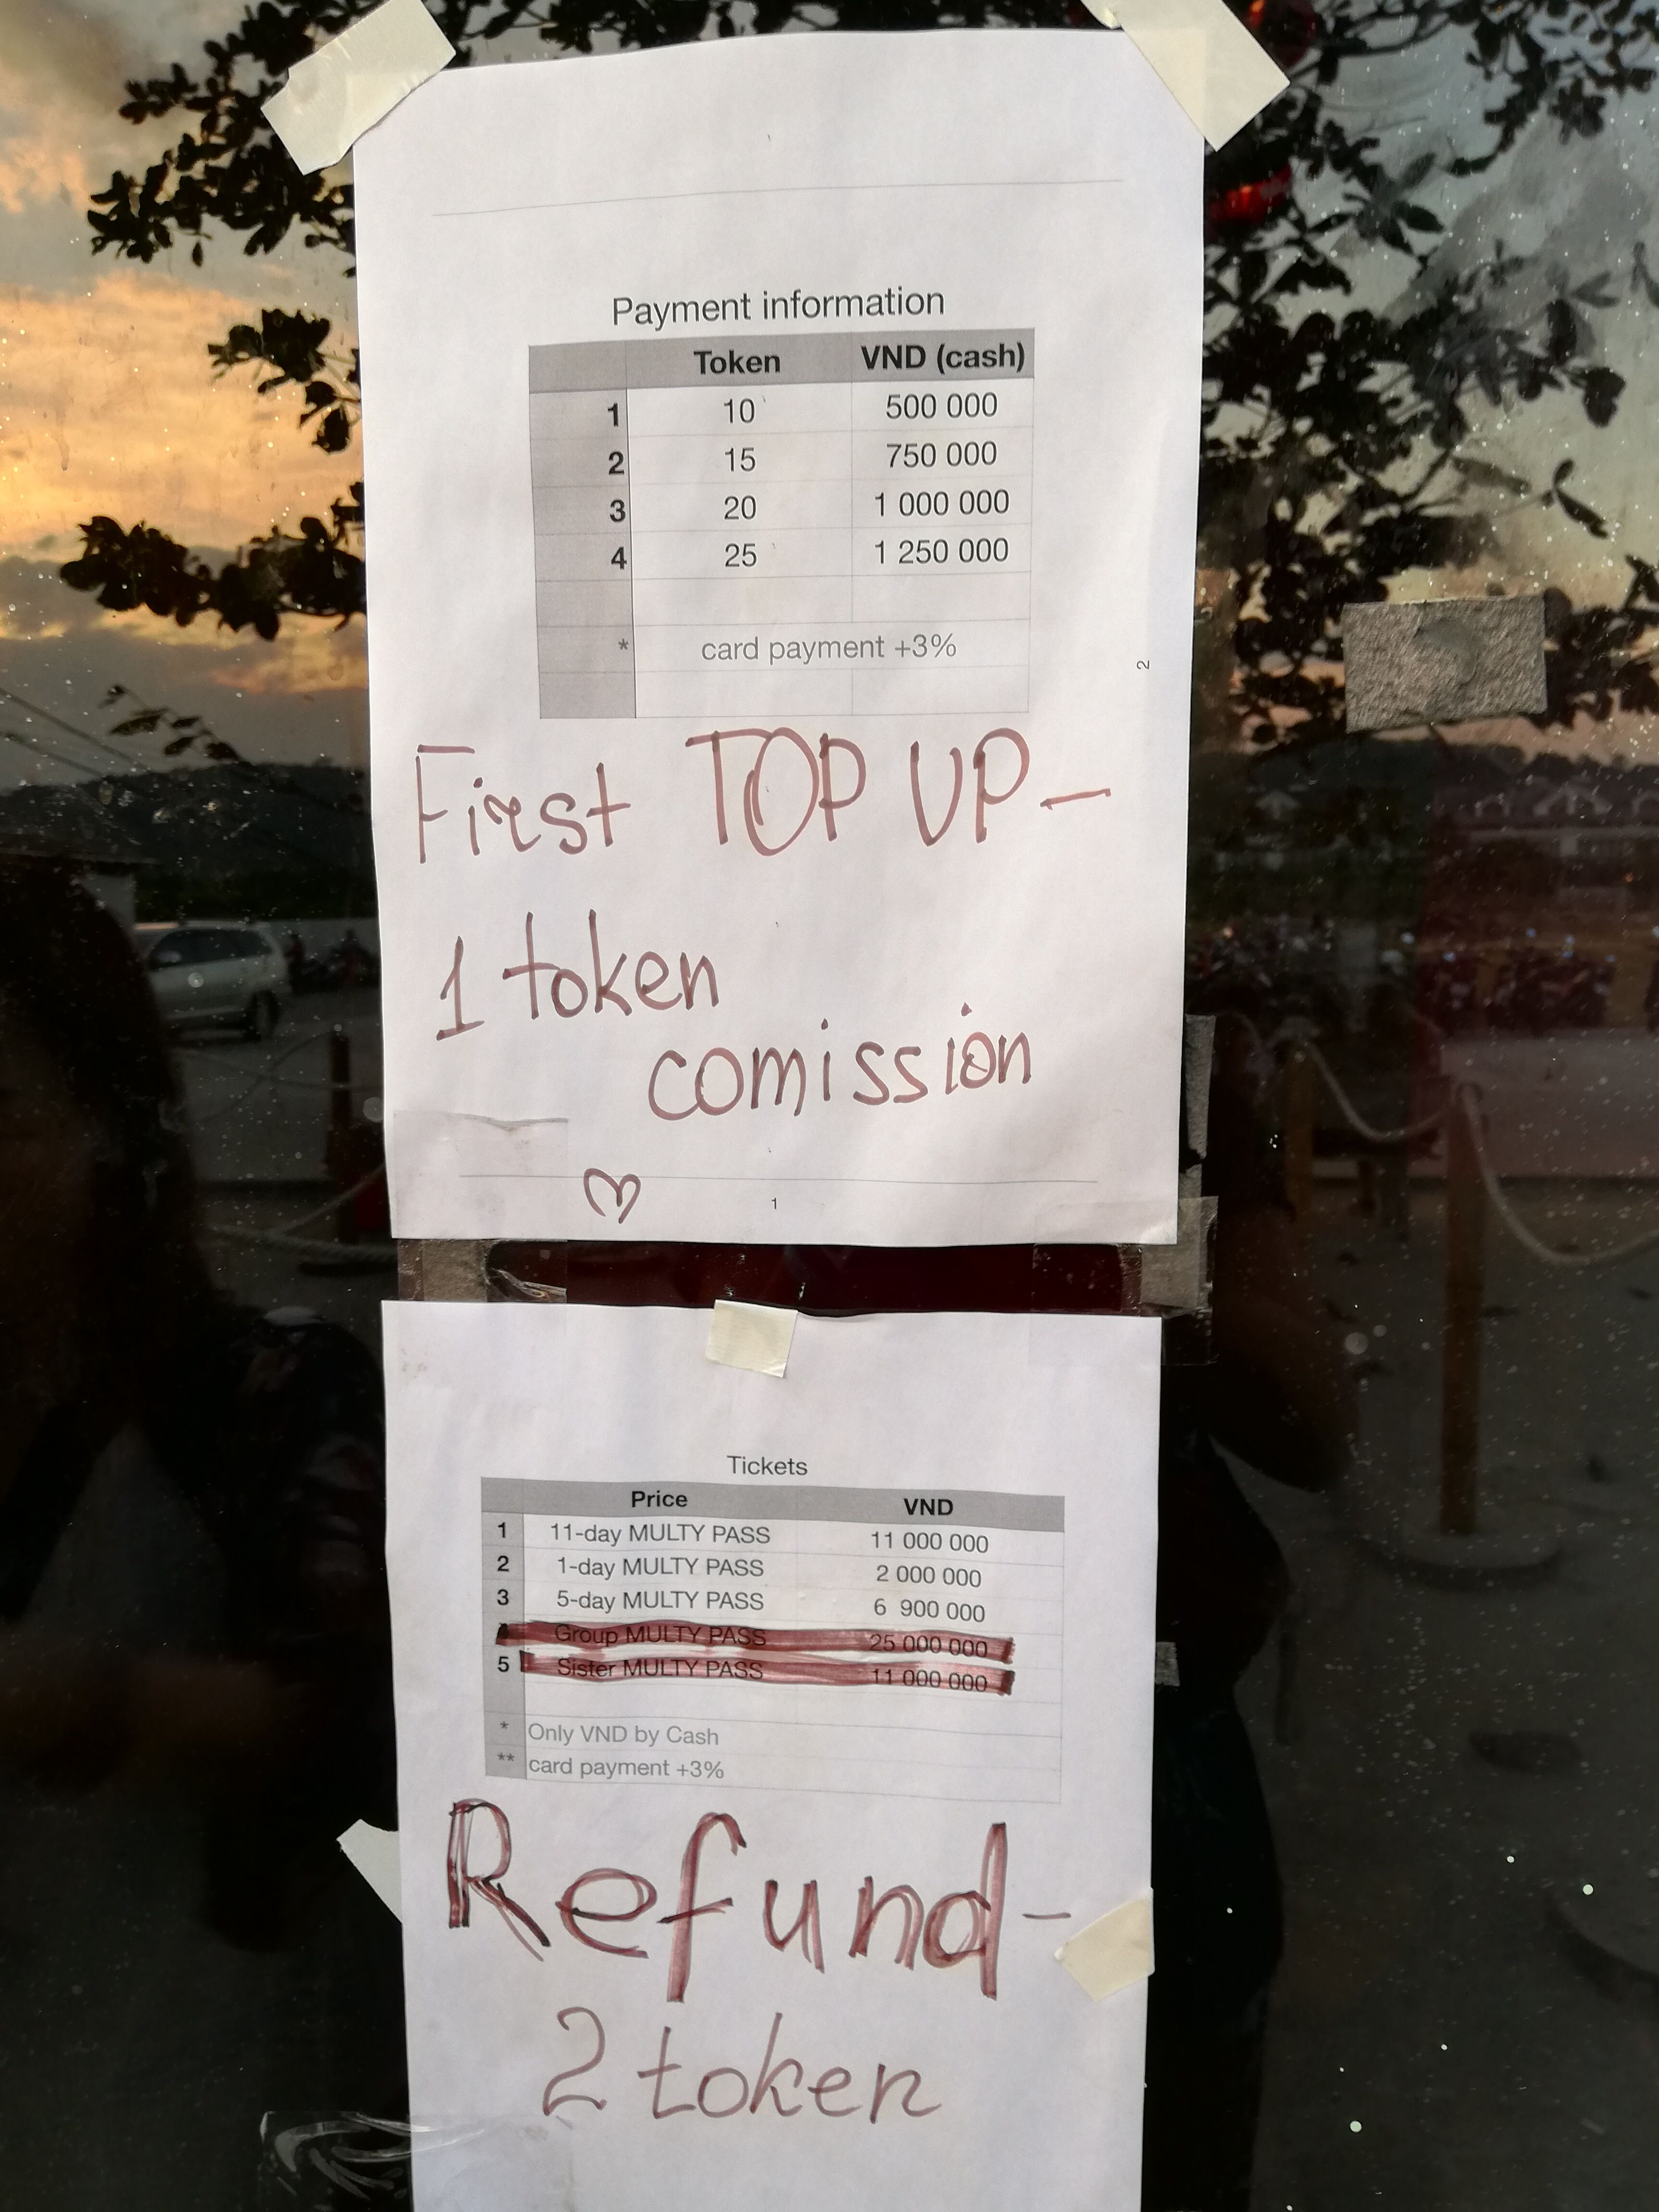 Payment information
Token VND (cash)
1 10 500 000
2 15 750 000
3 20 1 000 000
4 25 1 250 000
* card payment +3%
2
First TOP UP -
1 token
comission
1
Tickets
Price VND
1 11-day MULTY PASS 11 000 000
2 1-day MULTY PASS 2 000 000
3 5-day MULTY PASS 6 900 000
Group MULTY PASS 25 000 000
5 Sister MULTY PASS 11 000 000
* Only VND by Cash
** card payment +3%
Refund -
2 token